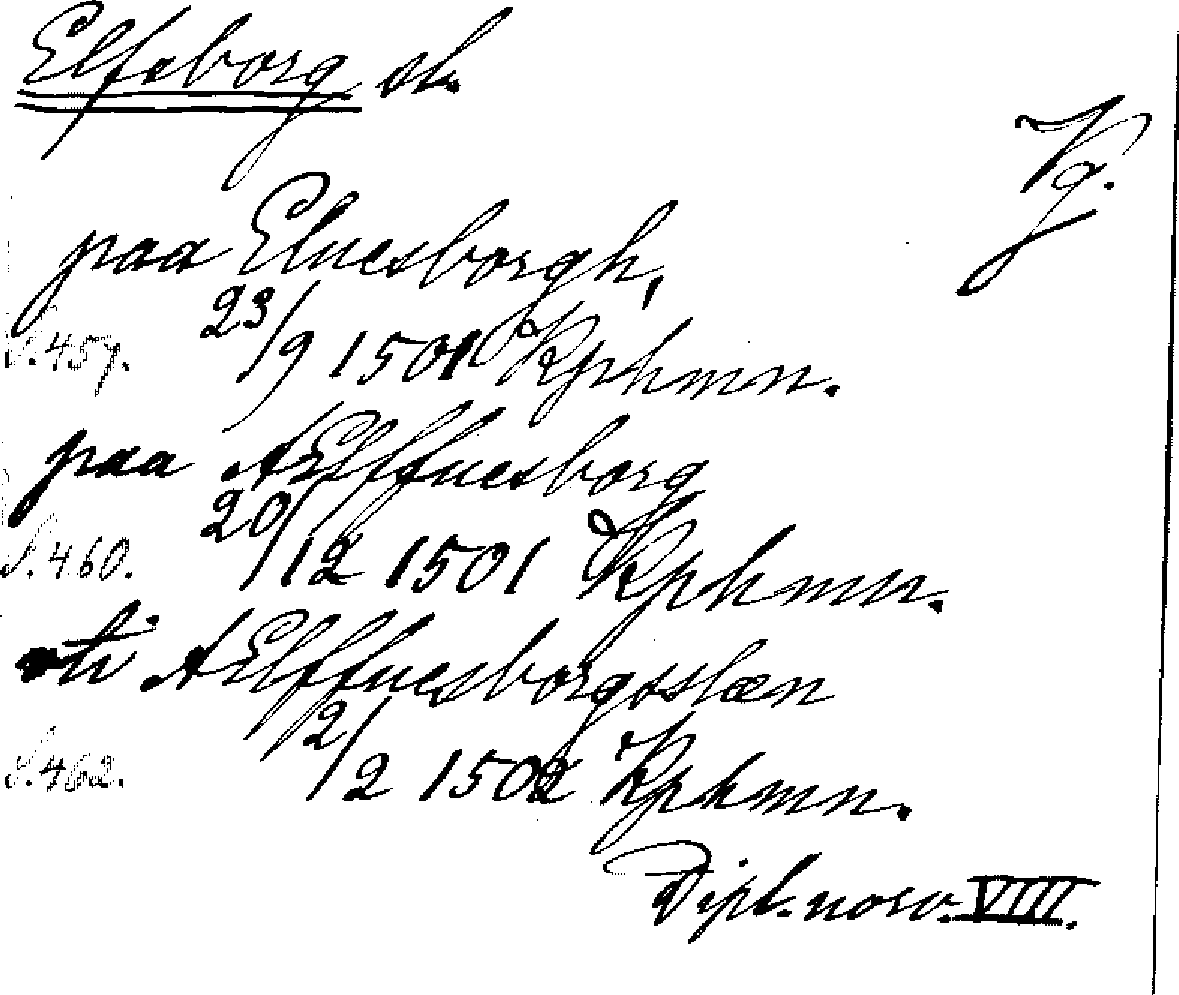 Elfsborg sl.
Vg.
paa Eluesborgh,
S. 457. 23/9 1501 Kphmn.
paa AElffuesborg
S. 460. 20/12 1501 Kphmn.
i AElffuesborgsslæn
S. 462. 2/2 1502 Kphmn.
Dipl. norv. VIII.